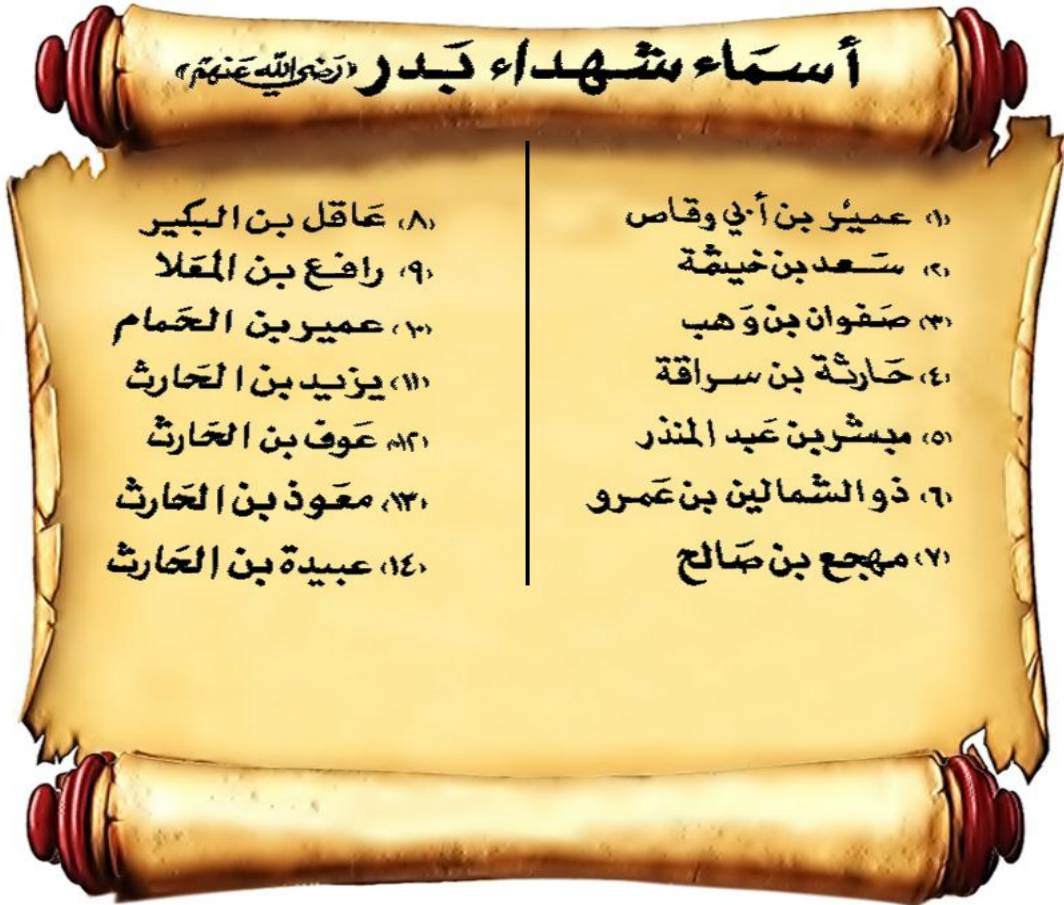 أسمَاء شهداء بَدر (رَضي الله عَنهمْ)
(١) عميْر بن أبي وقاص
(٢) سَعد بن خيثمة
(٣) صَفوان بن وَهب
(٤) حَارثة بن سراقة
(٥) مبشر بن عَبد المنذر
(٦) ذو الشمالين بن عَمرو
(٧) مهجع بن صَالح
(٨) عَاقل بن البكير
(٩) رافع بن المعَلا
(١٠) عمير بن الحَمام
(١١) يزيد بن الحَارث
(١٢) عَوف بن الحَارث
(١٣) معَوذ بن الحَارث
(١٤) عبيدة بن الحَارث